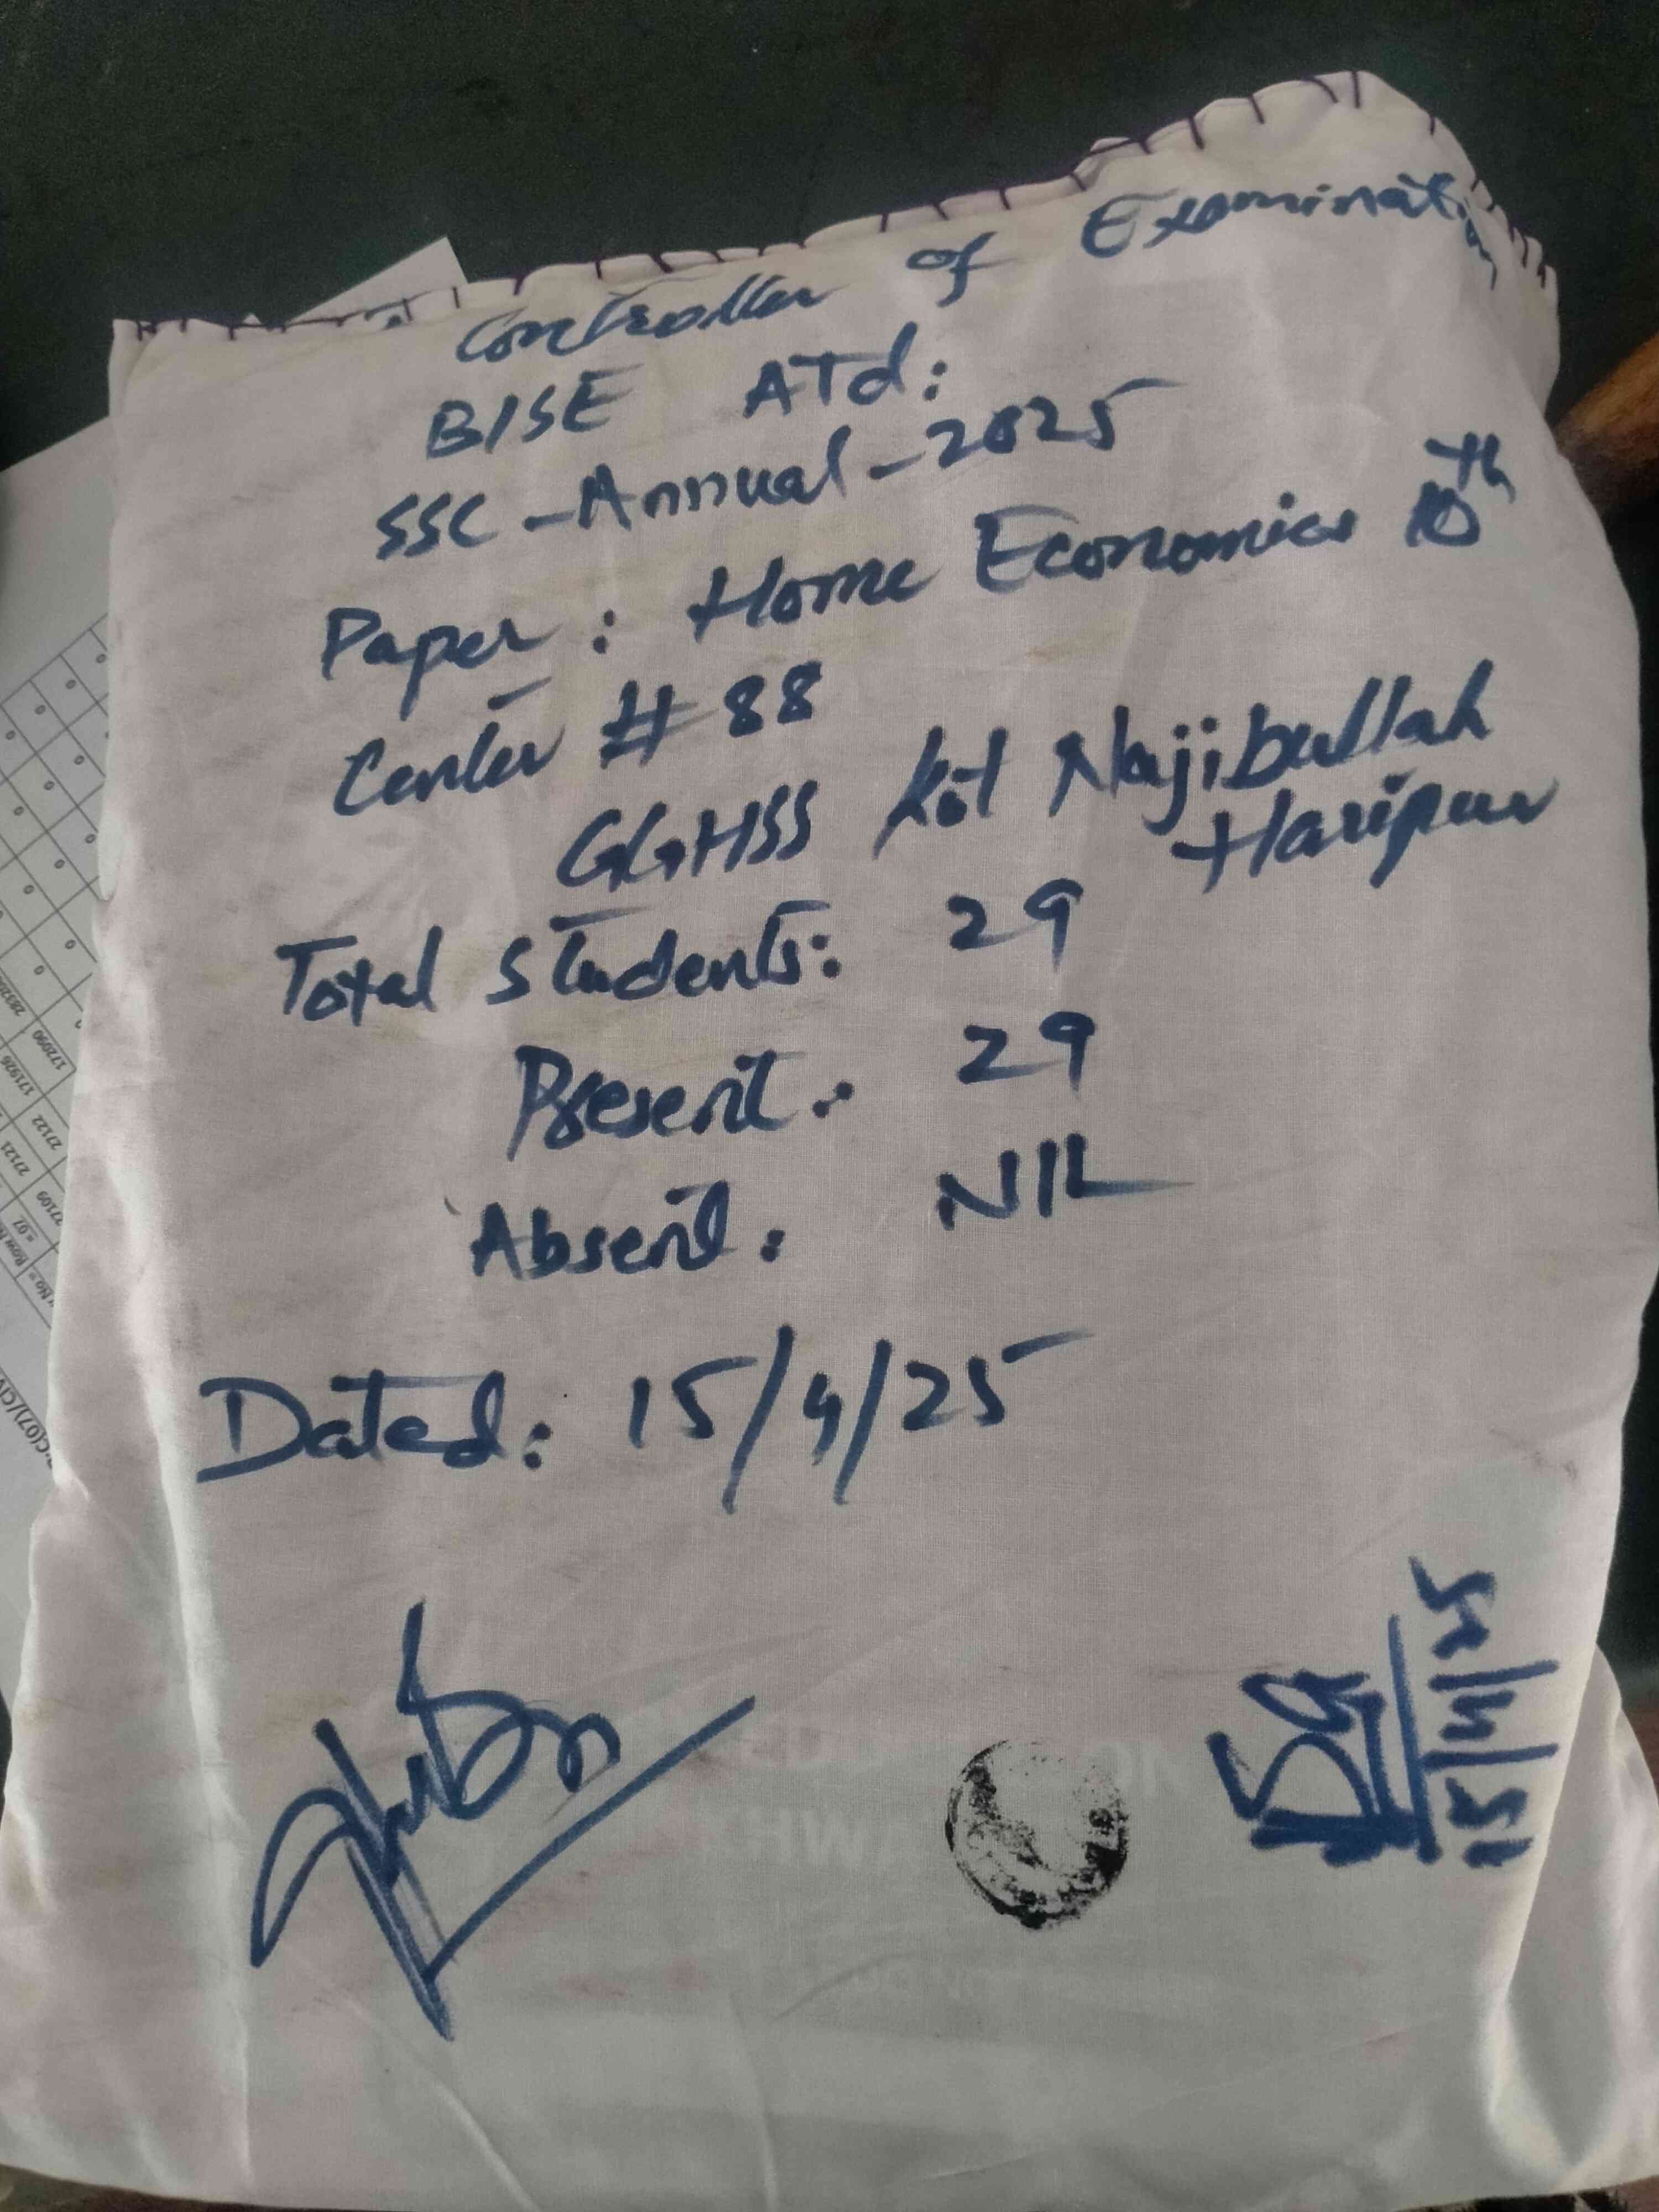 Controller of Examination
BISE ATd:
SSC - Annual - 2025
Paper: Home Economics 10th
Center # 88
GGHSS Kot Najibullah
Haripur
Total Students: 29
Present: 29
Absent: NIL
Dated: 15/4/25
15/4/25
172090
171926
27122
27121
27109